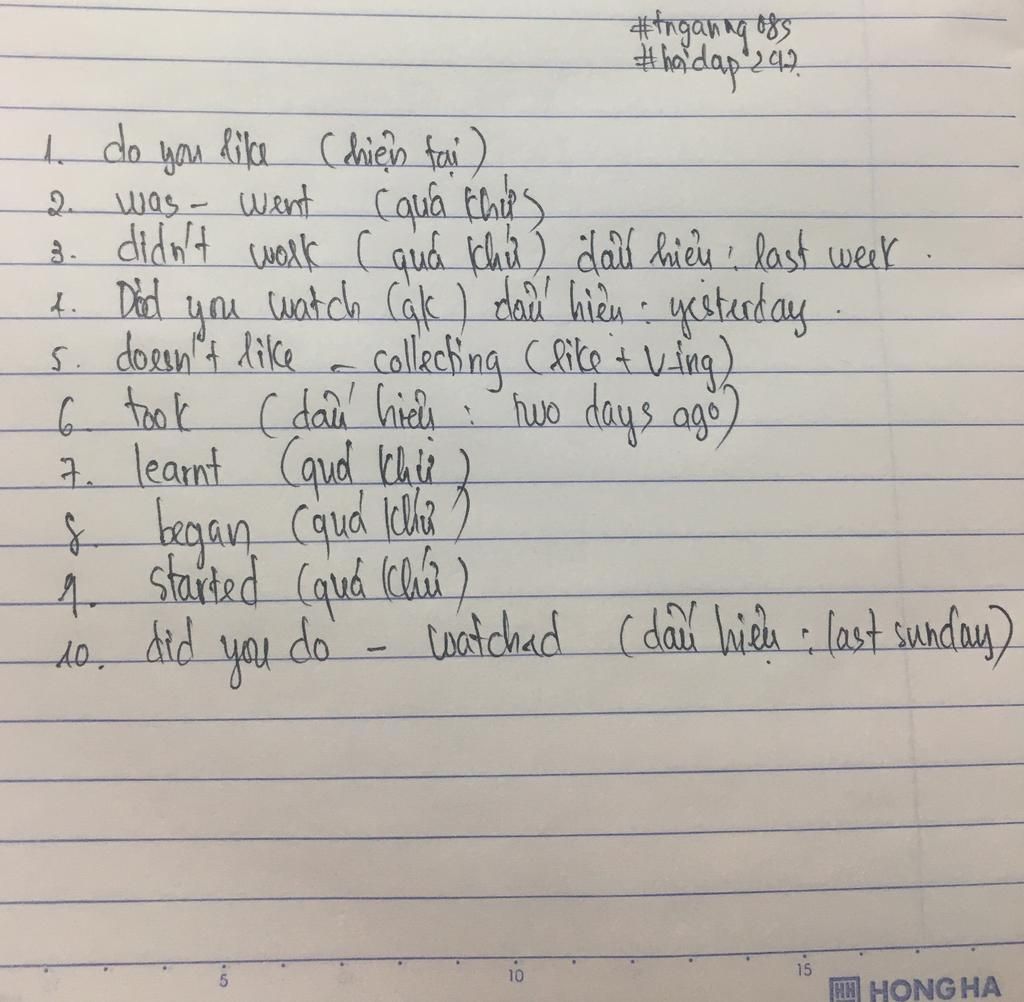 #tnganng08s
#hoidap247
1. do you like (hiện tại)
2. was - went (quá khứ)
3. didn't work (quá khứ) dấu hiệu: last week.
4. Did you watch (qk) dấu hiệu: yesterday.
5. doesn't like - collecting (like + V-ing)
6. took (dấu hiệu: two days ago)
7. learnt (quá khứ)
8. began (quá khứ)
9. started (quá khứ)
10. did you do - watched (dấu hiệu: last sunday)
5 10 15
HH HONG HA